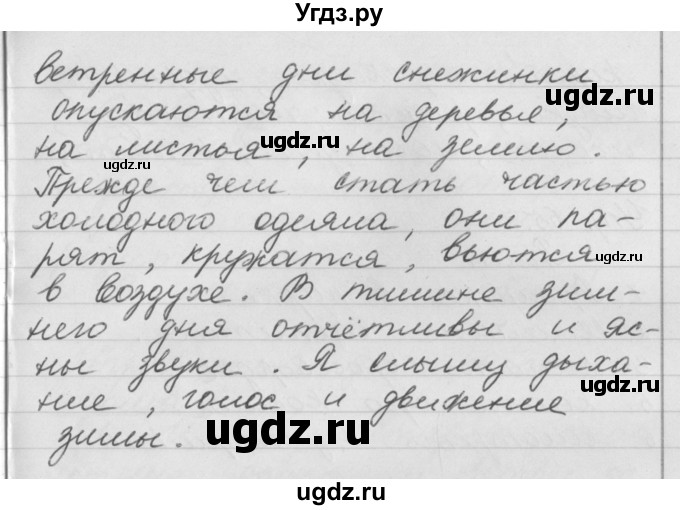 Угдз.ру
ветренные дни снежинки
опускаются на деревья,
ugdz.ru
на листья, на землю.
ugdz.ru
ugdz.ru
Прежде чем стать частью
холодного одеяла, они па-
рят, кружатся, вьются
ugdz.ru
в воздухе. В тишине зим-
него дня отчётливы и яс-
ны звуки. Я слышу дыха-
ugdz.ru
ние, голос и движение
зимы.
ugdz.ru
ugdz.ru